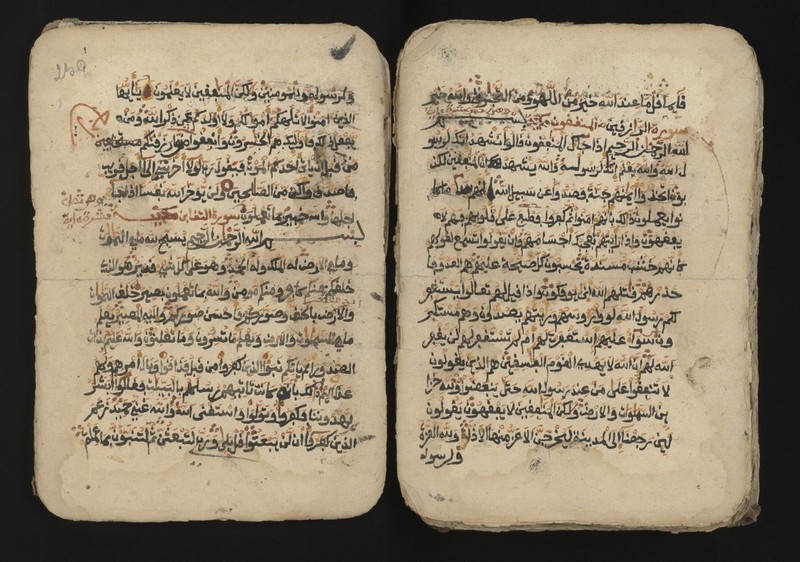 قائما قل ما عند الله خير من اللهو ومن التجرة والله خير
الرازقين سورة المنفقون
الله الرحمن الرحيم إذا جاك المنفقون قالوا نشهد إنك لرسو
ل الله والله يعلم إنك لرسوله والله يشهد إن المنفقين لكذ
بون اتخذوا أيمنهم جنة فصدوا عن سبيل الله إنهم ساء ما كا
نوا يعملون ذلك بأنهم امنوا ثم كفروا فطبع على قلوبهم فهم لا
يفقهون وإذا رأيتهم تعجبك أجسامهم وإن يقولوا تسمع لقولهم
كأنهم خشب مسندة يحسبون كل صيحة عليهم هم العدو فا
حذرهم قتلهم الله أنى يوفكون وإذا قيل لهم تعالوا يستغفر
لكم رسول الله لووا رؤسهم ورأيتهم يصدون وهم مستكبر
ون سواء عليهم أستغفرت لهم أم لم تستغفر لهم لن يغفر
الله لهم إن الله لا يهدي القوم الفسقين هم الذين يقولون
لا تنفقوا على من عند رسول الله حتى ينفضوا ولله خزا
ين السموت والارض ولكن المنفقين لا يفقهون يقولون
لين رجعنا إلى المدينة ليخرجن الاعز منها الاذل ولله العزة
ولرسوله
ولرسوله وللمومنين ولكن المنفقين لا يعلمون يأيها
الذين امنوا لا تلهكم أمولكم ولا أولدكم عن ذكر الله ومن
يفعل ذلك فأوليك هم الخسرون وأنفقوا من ما رزقنكم
من قبل أن ياتي أحدكم الموت فيقول رب لولا أخرتني إلى أجل قريب
فأصدق وأكن من الصلحين ولن يوخر الله نفسا إذا جا
أجلها والله خبير بما تعملون سورة التغابن
بسم الله الرحمن الرحيم يسبح لله ما في السموت
وما في الارض له الملك وله الحمد وهو على كل شيء قدير هو الذي
خلقكم فمنكم كافر ومنكم مومن والله بما تعملون بصير خلق السموت
والارض بالحق وصوركم فأحسن صوركم وإليه المصير يعلم
ما في السموت والارض ويعلم ما تسرون وما تعلنون والله عليم بذات
الصدور ألم ياتكم نبؤا الذين كفروا من قبل فذاقوا وبال أمرهم ولهم
عذاب أليم ذلك بأنه كانت تاتيهم رسلهم بالبينت فقالوا أبشر
يهدوننا فكفروا وتولوا واستغنى الله والله غني حميد زعم
الذين كفروا أن لن يبعثوا قل بلى وربي لتبعثن ثم لتنبون بما عملتم